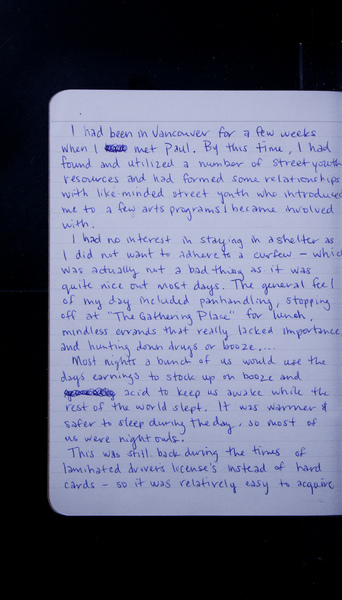 I had been in Vancouver for a few weeks
when I met Paul. By this time, I had
found and utilized a number of street youth
resources and had formed some relationships
with like-minded street youth who introduced
me to a few arts programs I became involved
with.
I had no interest in staying in a shelter as
I did not want to adhere to a curfew - which
was actually not a bad thing as it was
quite nice out most days. The general feel
of my day included panhandling, stopping
off at "The Gathering Place" for lunch,
mindless errands that really lacked importance
and hunting down drugs or booze....
Most nights a bunch of us would use the
days earnings to stock up on booze and
acid to keep us awake while the
rest of the world slept. It was warmer &
safer to sleep during the day, so most of
us were night owls.
This was still back during the times of
laminated drivers license's instead of hard
cards - so it was relatively easy to acquire